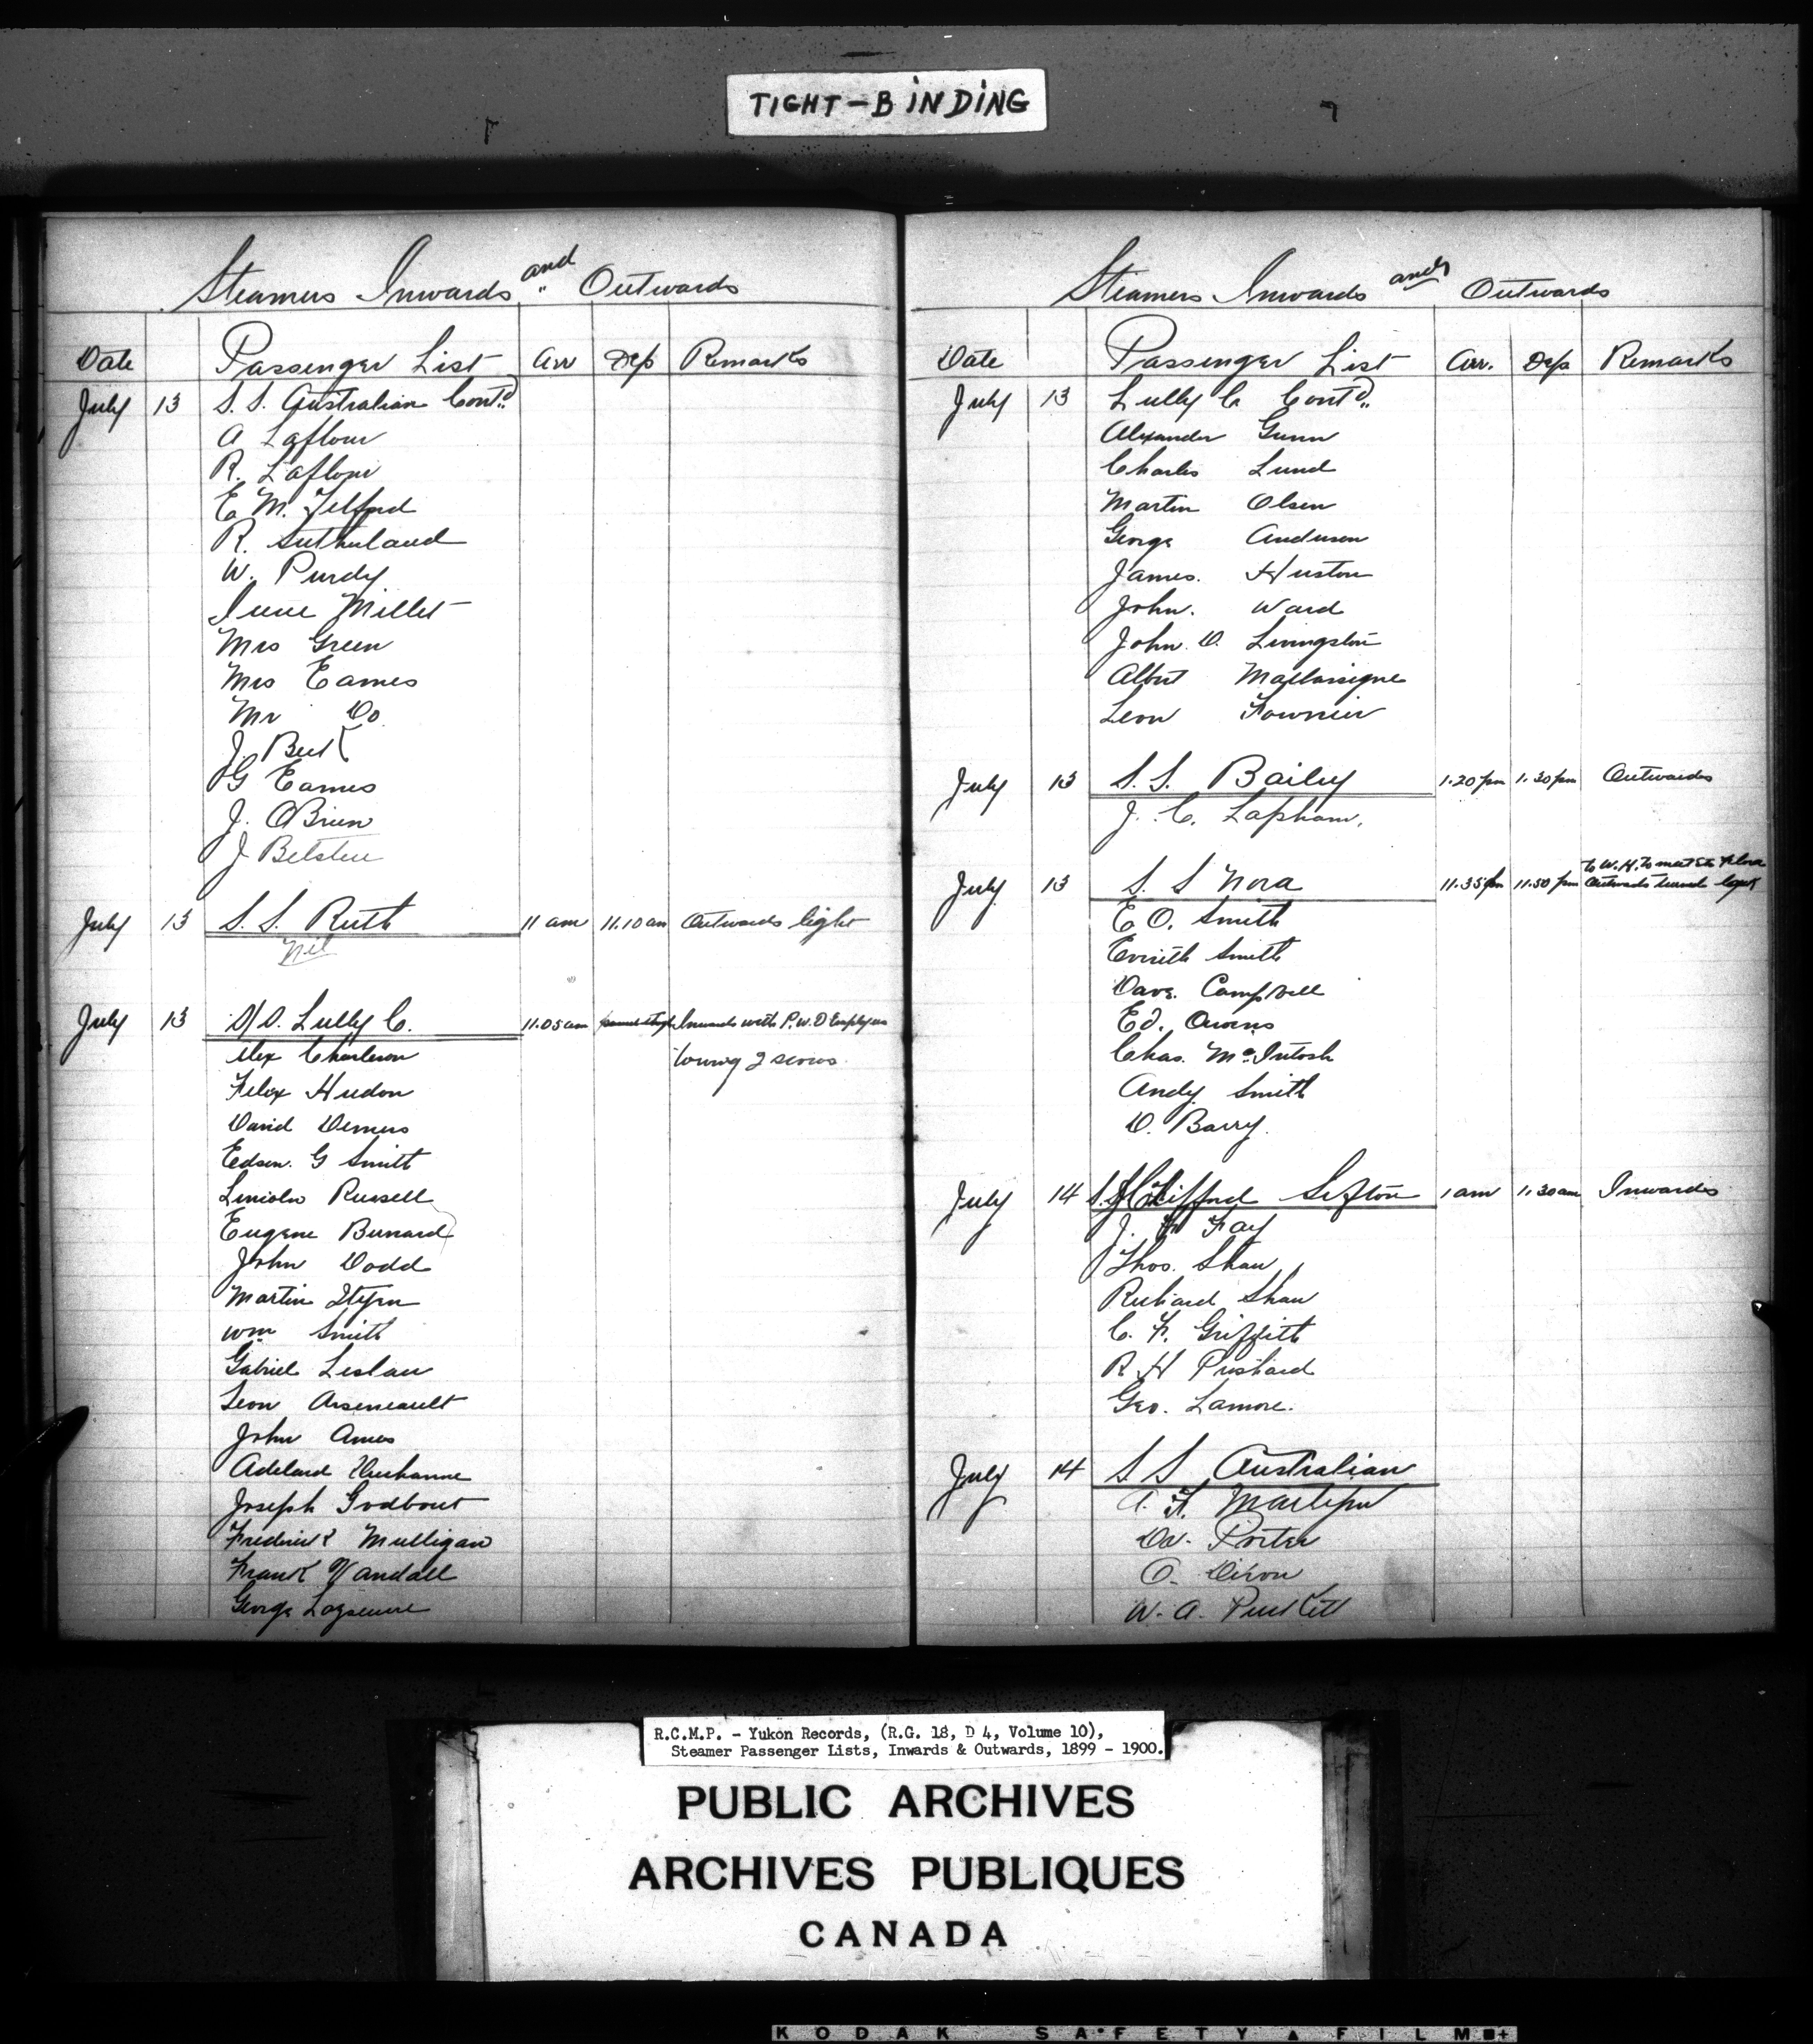 TIGHT-BINDING
Steamers Inwards and Outwards
Date Passenger List Arr Dep Remarks
July 13 S. S. Australian Cont'd
A Laflour
R. Laflour
E M. Telford
R. Sutherland
W. Purdy
Irene Millet
Mrs Green
Mrs Eames
Mr Do
J. Burk
G Eames
J. OBrien
J Belstein
July 13 S. S. Ruth 11 am 11.10 am Outwards light
Nil
July 13 S/S. Lully C. 11.05 am Inwards with P.W.D Employees
Alex Charleson towing 2 scows.
Felix Hudon
David Demers
Edson. G Smith
Lincoln Russell
Eugene Bernard
John Dodd
Martin
Wm Smith
Gabriel
Leon Arseneault
John Ames
Adelard
Joseph Godbout
Frederick Mulligan
Frank Vandall
George
Steamers Inwards and Outwards
Date Passenger List Arr. Dep. Remarks
July 13 Lully C Cont'd
Alexander Gunn
Charles Lund
Martin Olsen
George Anderson
James. Huston
John. Ward
John. D. Livingston
Albert
Leon Fournier
July 13 S. S. Bailey 1.20 pm 1.30 pm Outwards
J. C. Lapham.
July 13 S. S Nora 11.35 pm 11.50 pm to W.H. to meet Str Flora Outwards
E O. Smith
Smith
Dave. Campbell
Ed. Owens
Chas. McIntosh
Andy Smith
D. Barry.
July 14 Clifford Sifton 1 am 1.30 am Inwards
J. Fay
Thos. Shaw
Richard Shaw
C. F. Griffith
R H Prichard
Geo. Lamore.
July 14 S S Australian
A. F.
Porter
O. Dixon
W. A. Puckett
R.C.M.P. - Yukon Records, (R.G. 18, D 4, Volume 10),
Steamer Passenger Lists, Inwards & Outwards, 1899 - 1900.
PUBLIC ARCHIVES
ARCHIVES PUBLIQUES
CANADA
KODAK SAFETY FILM